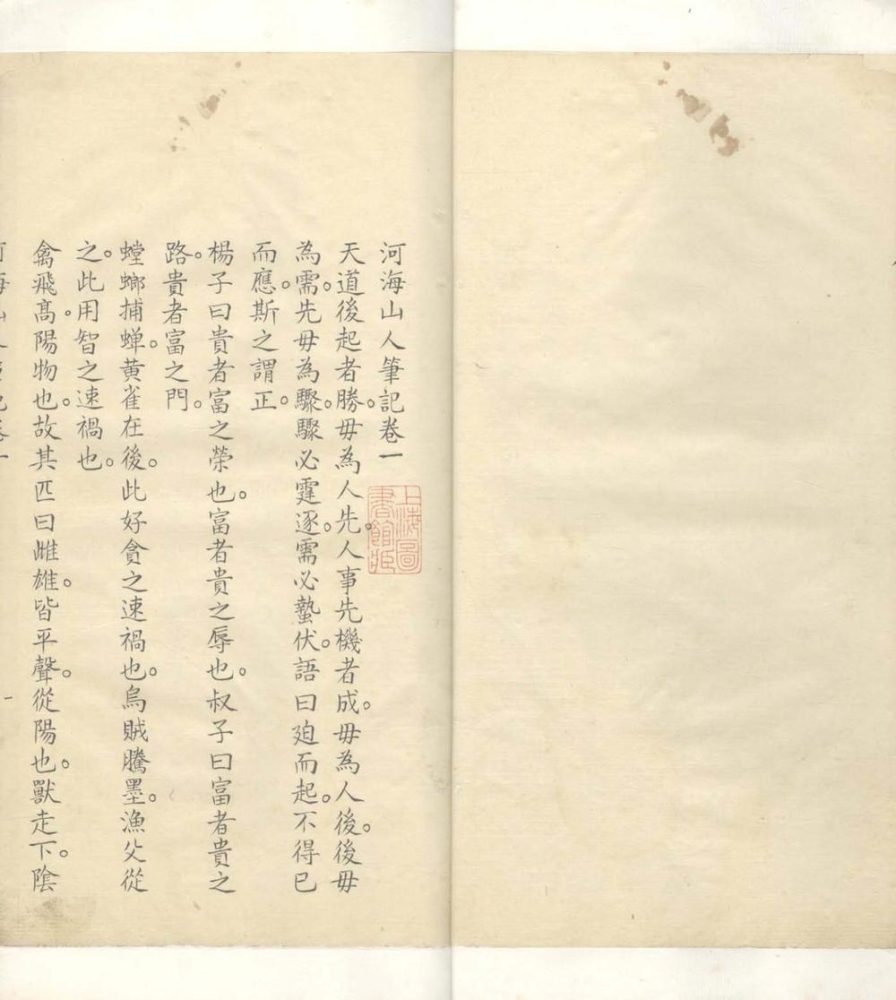 河海山人筆記卷一
天道後起者勝。毋為人先。人事先機者成。毋為人後。後毋
為需。先毋為驟。驟必霆逐。需必蟄伏。語曰廹而起。不得已
而應。斯之謂正。
楊子曰貴者富之榮也。富者貴之辱也。叔子曰富者貴之
路。貴者富之門。
螳螂捕蟬。黃雀在後。此好貪之速禍也。烏賊騰墨。漁父從
之。此用智之速禍也。
禽飛高。陽物也。故其匹曰雌雄。皆平聲。從陽也。獸走下。陰
上海圖書館藏